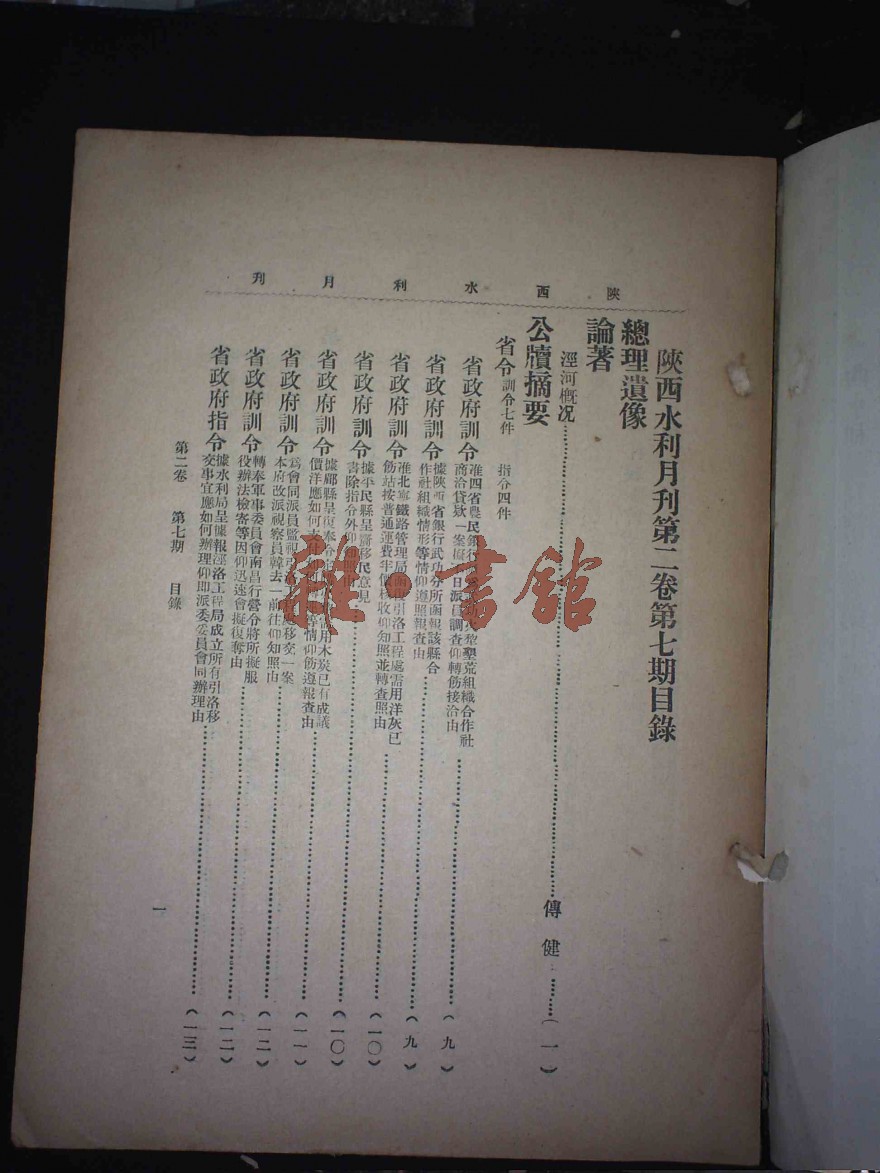 陝西水利月刊
陝西水利月刊第二卷第七期目錄
總理遺像
論著
涇河概况 傅健 (一)
公牘摘要
省令 訓令七件 指令四件
省政府訓令 准四省農民銀行 墾荒組織合作社
商洽貸款一案 日派員調查仰轉飭接洽由 (九)
省政府訓令 據陝西省銀行武功分所函報該縣合
作社組織情形等情仰遵照報查由 (九)
省政府訓令 准北寧鐵路管理局 引洛工程處需用洋灰已
飭站按普通運費半價 收仰知照並轉查照由 (一〇)
省政府訓令 據平民縣呈 移民意見
書除指令外仰 由 (一〇)
省政府訓令 據郿縣呈復奉令 需用木炭已有成議
價洋應如何 等情仰飭遵報查由 (一一)
省政府訓令 為會同派員監視引 處移交一案
本府改派視察員韓去一前往仰知照由 (一二)
省政府訓令 轉奉軍事委員會南昌行營令將所擬服
役辦法檢寄等因仰迅速會擬復奪由 (一二)
省政府指令 據水利局呈據報涇洛工程局成立所有引洛移
交事宜應如何辦理仰即派委委員會同辦理由 (一三)
第二卷 第七期 目錄
一
雜·書館